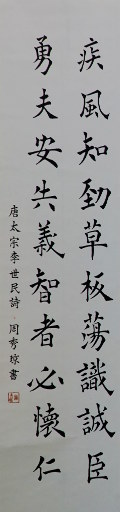 疾風知勁草板蕩識誠臣
勇夫安共義智者必懷仁
唐太宗李世民詩周秀琼書